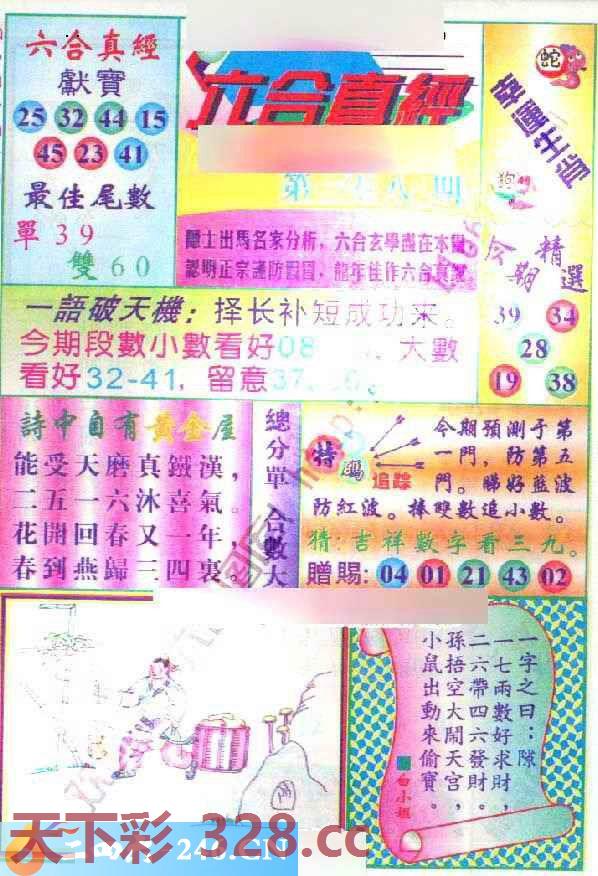 六合真經
獻寶
25 32 44 15
45 23 41
最佳尾數
單39
雙60
六合真經
蛇
狗
隱士出馬名家分析，六合玄學盡在本圖
認明正宗謹防觀圖，龍年佳作六合真經
今期
精選
39 34
28
19 38
一語破天機：择长补短成功来。
今期段數小數看好08
大數
看好32-41，留意37
詩中自有黃金屋
能受天磨真鐵漢，
二五一六沐喜氣。
花開回春又一年，
春到燕歸三四裏。
總分單
合數大
特碼
追踪
今期預測于第
一門，防第五
門。睇好藍波
防紅波。捧雙數追小數。
猜：吉祥數字看三九。
贈賜：04 01 21 43 02
一字之曰：隙
一七兩數好求財，
二六帶四六發財。
孫悟空大鬧天宮，
小鼠出動來偷寶。
白小姐
天下彩 328.cc
246.CN